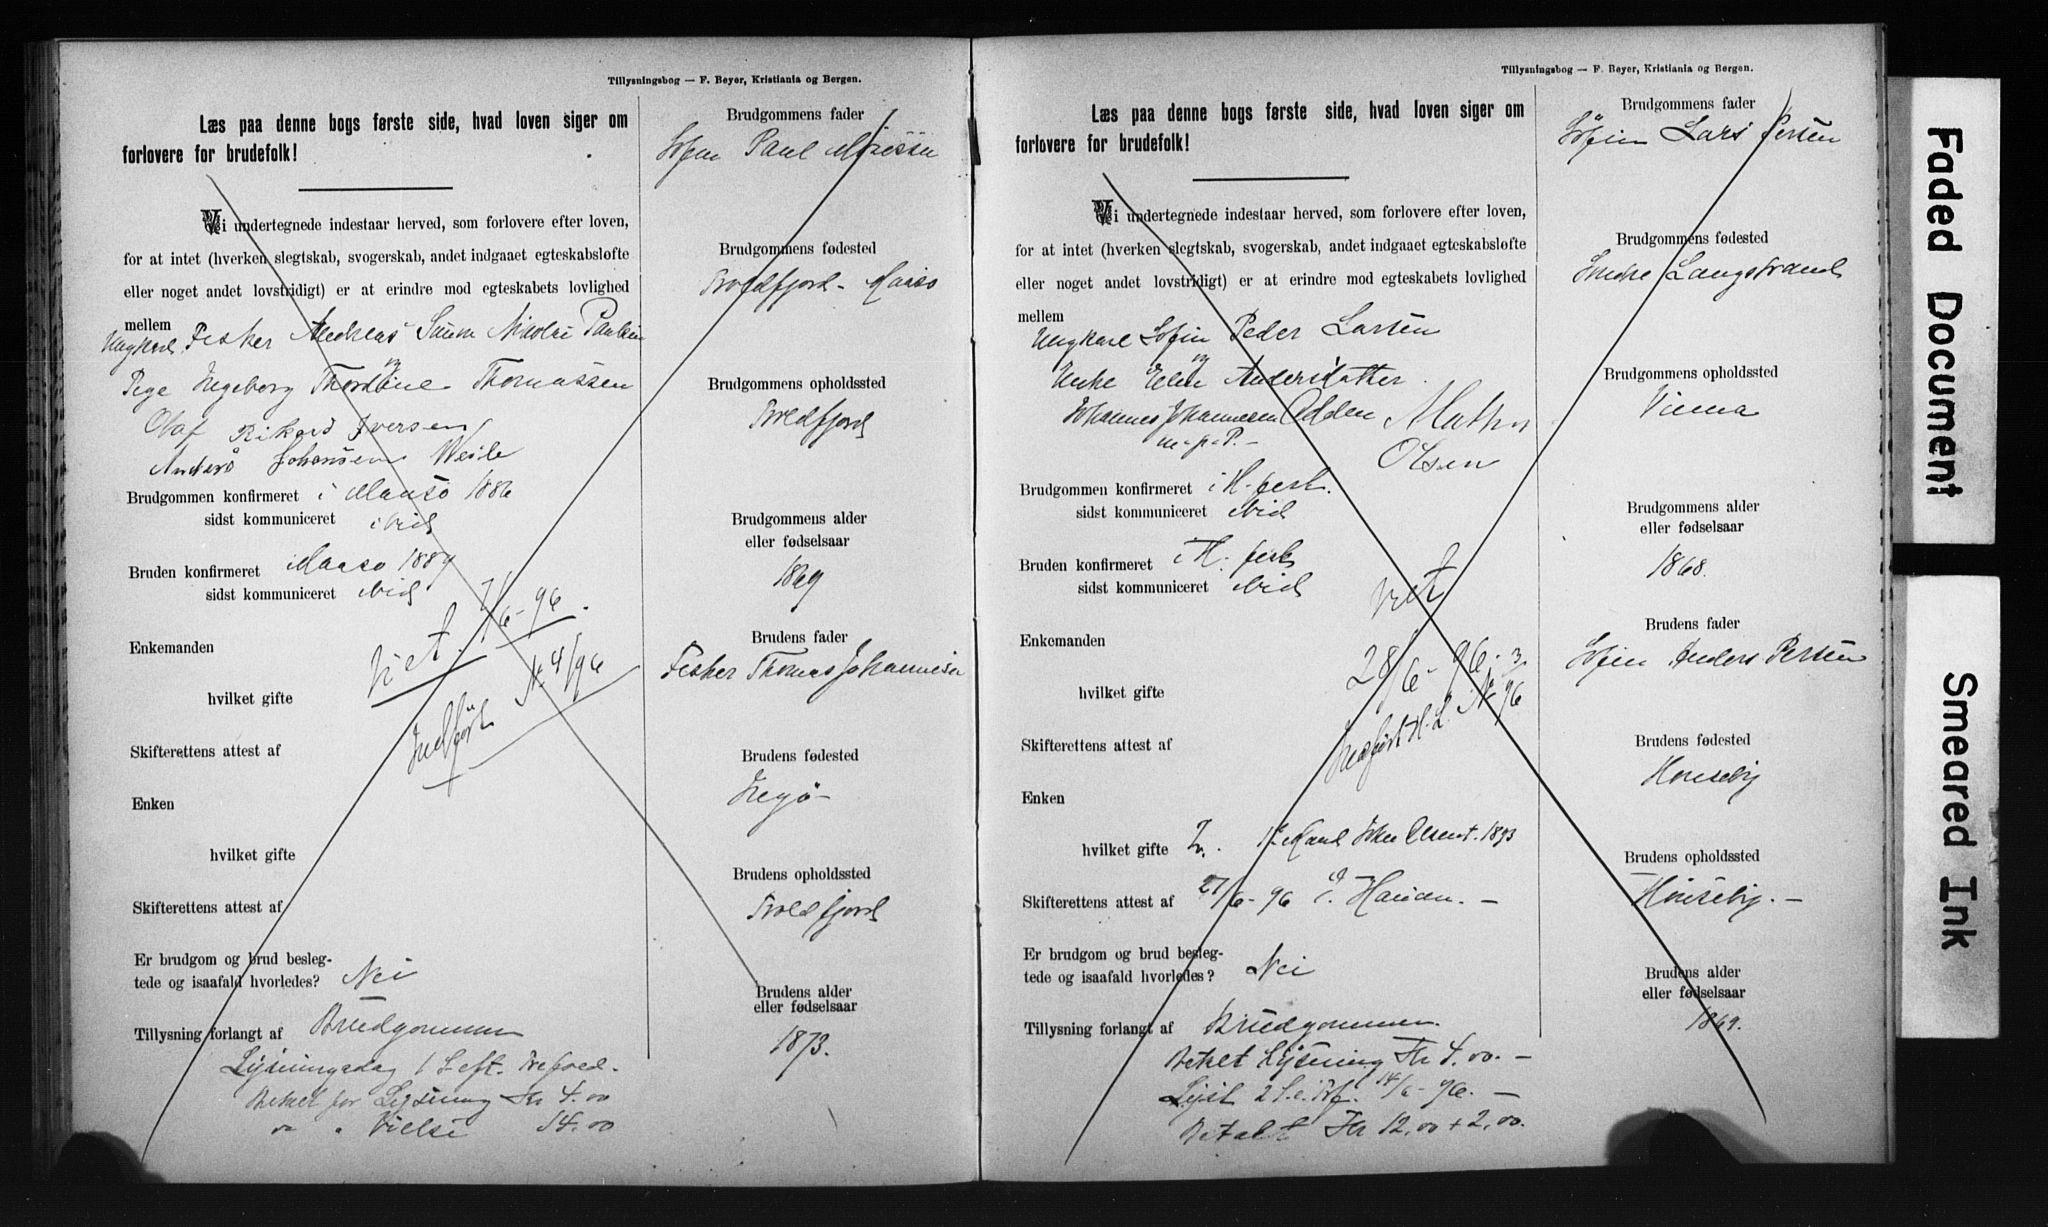 Tillysningsbog — F. Beyer, Kristiania og Bergen.
Læs paa denne bogs første side, hvad loven siger om
forlovere for brudefolk!
Vi undertegnede indestaar herved, som forlovere efter loven,
for at intet (hverken slegtskab, svogerskab, andet indgaaet egteskabsløfte
eller noget andet lovstridigt) er at erindre mod egteskabets lovlighed
mellem
Ungkarl Fisker Andreas Nicolai Paulsen
og
Pige Ingeborg Thomassen
Olaf Rikard Iversen
Anders Johansen
Brudgommen konfirmeret i Maasø 1886
sidst kommuniceret ibid
Bruden konfirmeret Maasø 1889
sidst kommuniceret ibid
Enkemanden
Viet 7/6-96.
hvilket gifte
Indført N. 4/96
Skifterettens attest af
Enken
hvilket gifte
Skifterettens attest af
Er brudgom og brud besleg-
tede og isaafald hvorledes? Nei
Tillysning forlangt af Brudgommen
Lysningsdag 1 S. eft.
Betalt for Lysning Kr 4.00
" " Vielse 14.00
Brudgommens fader
Paul
Brudgommens fødested
Troldfjord - Maasø
Brudgommens opholdssted
Troldfjord
Brudgommens alder
eller fødselsaar
1869
Brudens fader
Fisker Thomas Johannesen
Brudens fødested
Ingø
Brudens opholdssted
Troldfjord
Brudens alder
eller fødselsaar
1873.
Tillysningsbog — F. Beyer, Kristiania og Bergen.
Læs paa denne bogs første side, hvad loven siger om
forlovere for brudefolk!
Vi undertegnede indestaar herved, som forlovere efter loven,
for at intet (hverken slegtskab, svogerskab, andet indgaaet egteskabsløfte
eller noget andet lovstridigt) er at erindre mod egteskabets lovlighed
mellem
Ungkarl Søfin Peder Larsen
og
Enke Elen Andersdatter.
Johannes Johannesen Odden
m. p. P.
Olsen
Brudgommen konfirmeret i H. fest.
sidst kommuniceret ibid
Bruden konfirmeret i H. fest
sidst kommuniceret ibid
Viet
Enkemanden
28/6-96.
hvilket gifte
Indført H. L. No 3/96
Skifterettens attest af
Enken
hvilket gifte 2. 1ste Mand Olsen 1893
Skifterettens attest af 27/6-96
Er brudgom og brud besleg-
tede og isaafald hvorledes? Nei
Tillysning forlangt af Brudgommen.
Betalt Lysning Kr 4.00. —
Lyst 2 S. e. 14/6-96. —
Betalt Kr 12.00 + 2.00.
Brudgommens fader
Søfin Lars Persen
Brudgommens fødested
Indre Langstrand
Brudgommens opholdssted
Brudgommens alder
eller fødselsaar
1868.
Brudens fader
Søfin Anders Persen
Brudens fødested
Honseby
Brudens opholdssted
Honseby. —
Brudens alder
eller fødselsaar
1869.
Faded Document
Smeared Ink